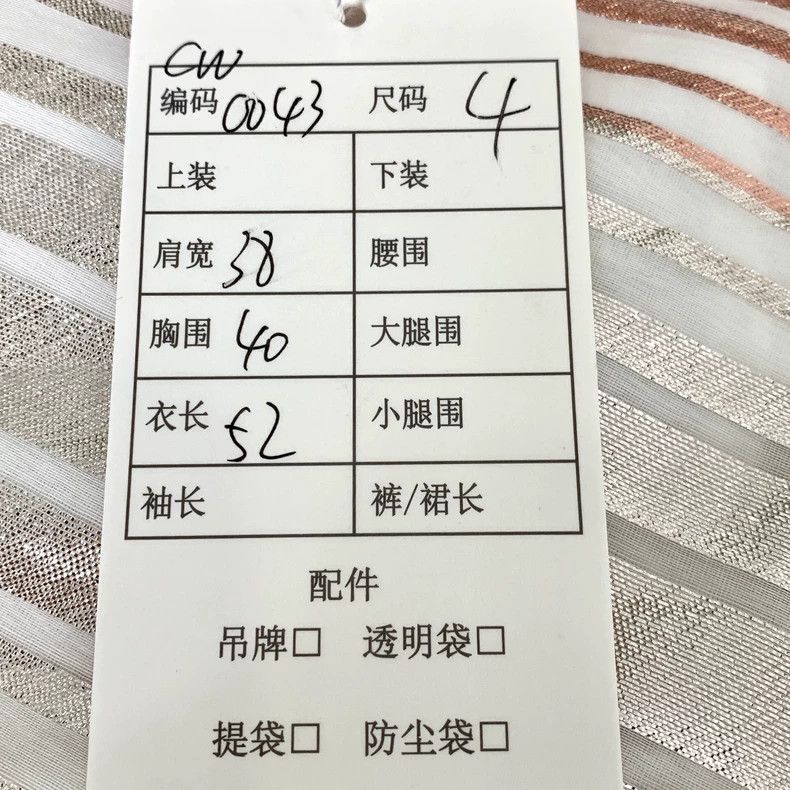 CW
编码 0043 尺码 4
上装 下装
肩宽 38 腰围
胸围 40 大腿围
衣长 52 小腿围
袖长 裤/裙长
配件
吊牌□ 透明袋□
提袋□ 防尘袋□